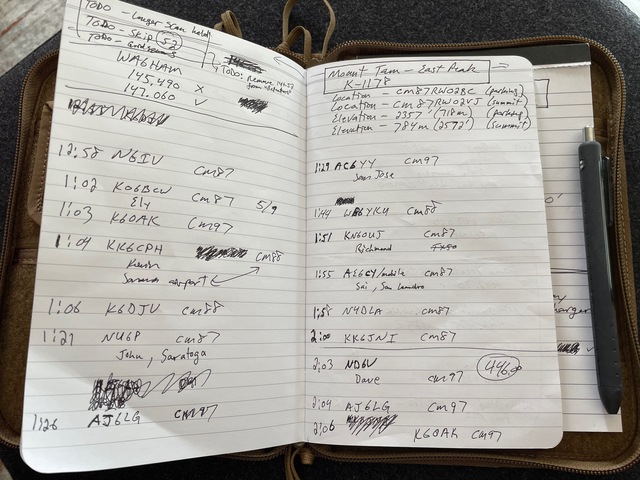 TODO - Longer scan hold
TODO - Skip 52
TODO -
WA6HAM
145.490 X
147.060 ✓
TODO: Remove
from
12:58 N6IV CM87
1:02 KO6BCW CM87 5/9
Ely
1:03 K6OAK CM97
1:04 KK6CPH CM88
Kevin
airport
1:06 K6DJV CM88
1:21 NU6P CM87
John, Saratoga
1:26 AJ6LG CM97
Mount Tam - East Peak
K-1178
Location - CM87RW02BC (parking)
Location - CM87RW02VJ (summit)
Elevation - 2357' (718m) (parking)
Elevation - 784m (2572') (summit)
1:29 AC6YY CM97
San Jose
1:44 CM88
1:51 KN6OUJ CM87
Richmond
1:55 AE6CY/mobile CM87
Sai, San Leandro
1:58 N4DLA CM87
2:00 KK6JNI CM87
2:03 ND6V 446.0
Dave CM97
2:04 AJ6LG CM97
2:06 K6OAK CM97